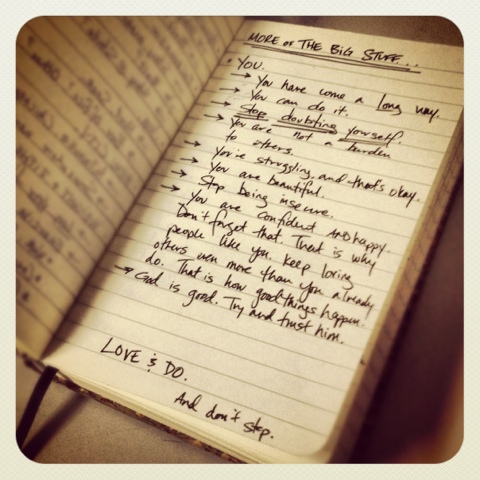 MORE OF THE BIG STUFF...
• YOU.
→ You have come a long way.
→ You can do it.
→ Stop doubting yourself.
→ You are not a burden
to others.
→ You're struggling, and that's okay.
→ You are beautiful.
→ Stop being insecure.
You are confident AND happy.
Don't forget that. That is why
people like you. Keep loving
others, even more than you already
do. That is how good things happen.
→ God is good. Try and trust him.
LOVE & DO.
And don't stop.